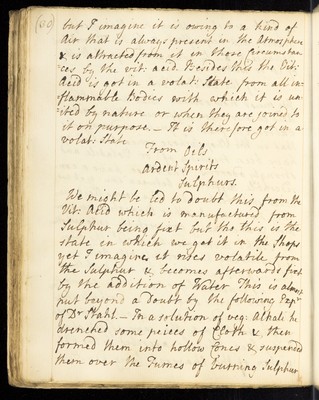 (30)
but I imagine it is owing to a kind of
Air that is always present in the Atmosphere
& is attracted from it in these Circumstan-
ces by the vit: acid. Besides this the Vit:
Acid is got in a volat: State from all in-
flammable bodies with which it is un-
ited by nature or when they are joined to
it on purpose. — It is therefore got in a
volat: State
From Oils
Ardent Spirits
Sulphurs.
We might be led to doubt this from the
Vit: Acid which is manufactured from
Sulphur being fixt but tho this is the
state in which we get it in the Shops
yet I imagine it rises volatile from
the Sulphur & becomes afterwards fixt
by the addition of Water This is almost
put beyond a Doubt by the following Expt
of Dr Stahl. — In a solution of veg: Alkali he
drenched some pieces of Cloth & then
formed them into hollow Cones & suspended
them over the Fumes of burning Sulphur